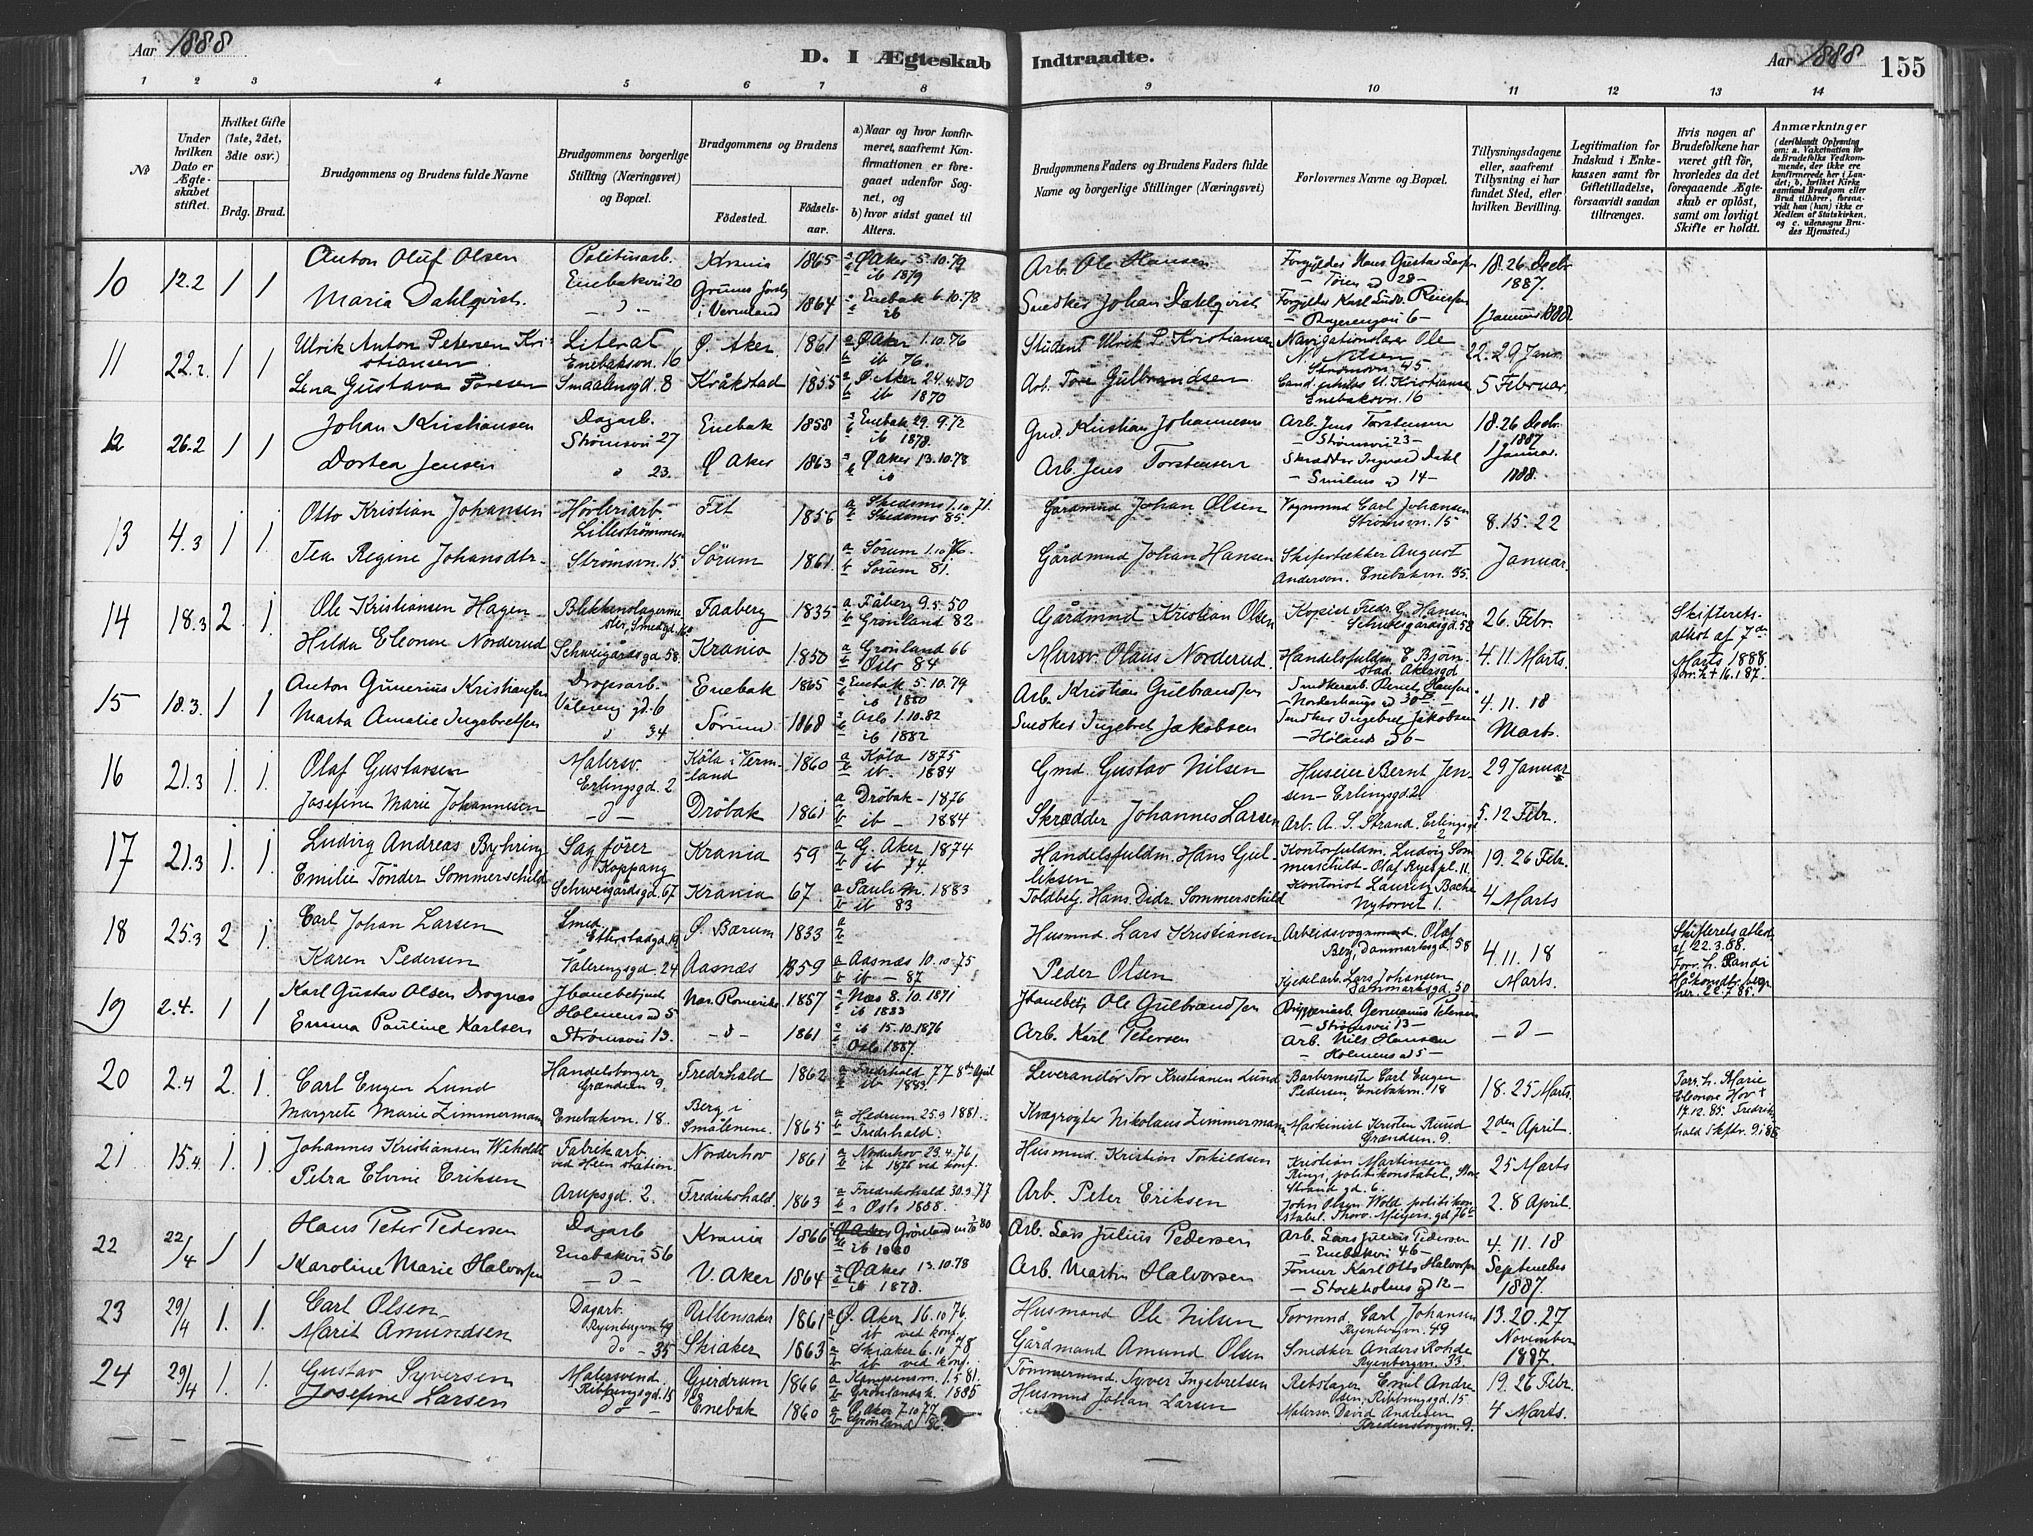 Aar 1888
D. I Ægteskab Indtraadte.
Aar 1888
155
1 2 3 4 5 6 7 8 9 10 11 12 13 14
No
Under hvilken Dato er Ægteskabet stiftet.
Hvilket Gifte (1ste, 2det, 3die osv.)
Brdg. Brud.
Brudgommens og Brudens fulde Navne
Brudgommens borgerlige Stilling (Næringsvei) og Bopæl.
Brudgommens og Brudens
Fødested.
Fødselsaar.
a) Naar og hvor konfirmeret, saafremt Konfirmationen er foregaaet udenfor Sognet, og
b) hvor sidst gaaet til Alters.
Brudgommens Faders og Brudens Faders fulde Navne og borgerlige Stillinger (Næringsvei)
Forlovernes Navne og Bopæl.
Tillysningsdagene eller, saafremt Tillysning ei har fundet Sted, efter hvilken Bevilling.
Legitimation for Indskud i Enkekassen samt for Giftetilladelse, forsaavidt saadan tiltrænges.
Hvis nogen af Brudefolkene har været gift før, hvorledes da det foregaaende Ægteskab er opløst, samt om lovligt Skifte er holdt.
Anmærkninger
10 12.2 1 1 Anton Oluf Olsen Politinarb. Enebakvei 20 Krania 1865 a Ø Aker 5.10.79 b ib 1879 Arb. Ole Hansen 18. 26 Decbr. 1887.
Maria Dahlqvist i Vermland 1864 a Enebak 6.10.78 b ib Snedker Johan Dahlqvist 1 Januar 1888.
11 22.2 1 1 Ulrik Anton Petersen Kristiansen Literat Enebaksvn. 16 Ø. Aker 1861 a Ø Aker 1.10.76 b ib 76. Student Ulrik P. Kristiansen Navigationslærer Ole N. Nilsen Strømsvn 45 22. 29 Janr.
Lena Gustava Toresen Smaalensgd. 8 Kråkstad 1855 a Ø. Aker 24.4.70 b ib 1870 Arb. Tore Gulbrandsen Cand. philos U. Kristiansen Enebakvn. 16 5 Februar.
12 26.2 1 1 Johan Kristiansen Dagarb. Strømsvei 27 Enebak 1858 a Enebak 29.9.72 b ib 1878. Grd. Kristian Johannesen Arb. Jens Torstensen Strømsvei 23 18. 26 Decbr. 1887
Dortea Jensen " 23. Ø Aker 1863 a Ø Aker 13.10.78 b ib Arb. Jens Torstensen Skrædder Ingvald Dahl 14 1 Januar. 1888.
13 4.3 1 1. Otto Kristian Johansen Høvleriarb Lillestrømmen Fet 1856 a Skedsmo 1.10.71. b Skedsmo 85. Gårdmnd Johan Olsen Vognmnd Carl Johansen Strømsvn. 15 8. 15. 22
Tea Regine Johansdtr. Strømsvn. 15 Sørum 1861. a Sørum 1.10.76. b Sørum 81. Gårdmnd Johan Hansen Skifertækker August Anderson. Enebakvn. 35. Januar.
14 18.3 2. 1. Ole Kristiansen Hagen Faaberg 1835 a Fåberg 9.5.50 b Grønland 82 Gårdmnd Kristian Olsen Kopist Fredr. G. Hansen Schweigårdsgd. 58 26. Febr. Skifterets-attest af 7de Marts 1888.
Hilda Eleonore Norderud Schweigårdsgd. 58. Krania 1850 a Grønland 66 b Oslo 84 Mursv. Olaus Norderud. Handelsfuldm. E. Bjørnstad. Akersgd 4. 11. Marts.
15 18.3. 1 1 Anton Gunerius Kristiansen Vålereng gd. 6 Enebak 1865 a Enebak 5.10.79 b ib 1880 Arb. Kristian Gulbrandsen 4. 11. 18
Marta Amalie Ingebretsen " 34 Sørum 1868 a Oslo 1.10.82 b ib 1882 Snedker Ingebret Jakobsen Snedker Ingebret Jakobsen Marts.
16 21.3 1. 1. Olaf Gustavsen Malersv. Erlingsgd. 2 Kôla i Vermland 1860 a Kôla 1875 b ib. 1884 Gmd. Gustav Nilsen Huseier Bernt Jensen - Erlingsgd 2. 29 Januar
Josefine Marie Johannesen Drøbak 1861 a Drøbak - 1876 b ib - 1884 Skrædder Johannes Larsen Arb. A. S. Strand. Erlingsgd 2 5. 12 Febr.
17 21.3 1. 1. Ludvig Andreas Byhring Sagfører Koppang Krania 59 a G. Aker 1874 b ib 74. Handelsfuldm. Hans Gulliksen Kontorfuldm. Ludvig Sommerschild - Olaf Ryes pl. 11. 19. 26 Feb.
Emilie Tönder Sommerschild Schweigårdsgd. 67 Krania 67. a Pauli M. 1883 b ib 83 Toldbetj. Hans Didr. Sommerschild Kontorist Lauritz Bache Nytorvet 1. 4 Marts
18 25.3 2 1. Carl Johan Larsen Smed Etterstadgd. Ø. Bærum 1833 a b Husmnd Lars Kristiansen Arbeidsvognmnd. Olaf Berg, Danmarksgd. 58 4. 11. 18 Skifterets attest af 22.3.88.
Karen Pedersen Vålerengsgd. 24 Aasnæs 1859 a Aasnæs 10.10.75 b ib - 87 Peder Olsen Lars Johansen Danmarksgd. 50 Marts.
19 2.4. 1 1 Karl Gustav Olsen Dragnæs Jbanebetjent Holmensgd 5 Nes. Romerike 1857 a Næs 8.10.1871 b ib 1883 Jbanebetj. Ole Gulbrandsen Germanius Petersen Strømsvei 13
Emma Pauline Karlsen Strømsvei 13. 1861 a ib 15.10.1876 b Oslo 1887. Arb. Karl Petersen Arb. Nils Hansen Holmensgd 5
20 2.4 2. 1. Carl Eugen Lund Handelsborger Grændsen 9. Fredrhald 1862 a Fredrhald 77 8de April b ib 1883 Leverandør Tor Kristianen Lund Barbermester Carl Eugen Pedersen Enebakvn. 18 18. 25 Marts. Forr. h. Marie Eleonore Hov + 17.12.85.
Margrete Marie Zimmermann Enebakvn. 18. Berg i Smålenene. 1865 a Hedrum 25.9 1881. b Fredrhald. Kvægrøgter Nikolaus Zimmermann Maskinist Kristen Ruud Grændsen 9. 2den April.
21 15.4. 1. 1. Johannes Kristiansen Weholdt Fabrikarb. ved Heen station Norderhov 1861 a Norderhov 23.4.76 b ib 1876 ved konf. Husmnd. Kristian Torkildsen Kristian Martinsen Ring, politikonstabel, Strand gd. 6. 25 Marts
Petra Elvine Eriksen Arupsgd. 2. Fredrikshald 1863 a Fredrikshald 30.9.77 b Oslo 1888. Arb. Peter Eriksen John Olsen Wold politikonstabel. Thorv. Meyers. gd 76 2. 8 April.
22 22/4 1 1 Hans Peter Pedersen Dagarb Enebakvei 56 Krania 1866 b ib 1880 Arb. Lars Julius Pedersen Arb. Lars Julius Pedersen Enebakvei 46 4. 11. 18
Karoline Marie Halvorsen V. Aker 1864 a Ø Aker 13.10.78 b ib 1878. Arb. Martin Halvorsen Karl Otto Halvorsen Stockholmsgd 12 September 1887.
23 29/4 1. 1. Carl Olsen Dagarb. Ryenbergvn. 49 Ullensaker 1861 a Ø. Aker 16.10.76. b ib ved konf. Husmand Ole Nilsen Formnd. Carl Johansen Ryenbergvn. 49 13. 20. 27
Marit Amundsen do - 35 Skiaker 1863 a Skiaker 6.10.78 b ib ved konf. Gårdmand Amund Olsen Snedker Anders Rohde Ryenbergvn. 33. November 1887.
24 29/4 1. 1. Gustav Syversen Malersvend. Ribbungsgd. 15 Gjerdrum 1866 a Kampensm. 1.5.81. b Grønlandsk. 1885 Tømmermnd. Syver Ingebretsen Rebslager Emil Andresen, Ribbungsgd. 15 19. 26 Febr.
Josefine Larsen do Enebak 1860 a Ø. Aker 7.10.77 b Grønland 86. Husmnd Johan Larsen Malersv. David Andersen Fredensborgvn. 9. 4 Marts.